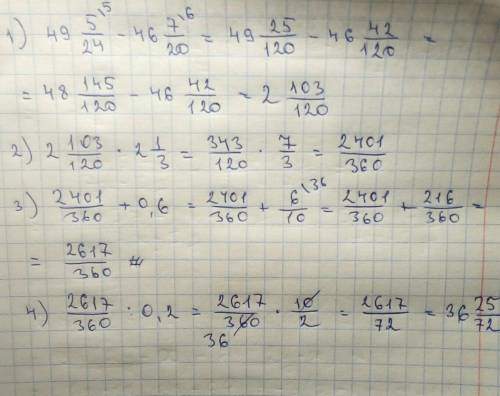 1) 49 5\5/24 − 46 7\6/20 = 49 25/120 − 46 42/120 =
= 48 145/120 − 46 42/120 = 2 103/120
2) 2 103/120 · 2 1/3 = 343/120 · 7/3 = 2401/360
3) 2401/360 + 0,6 = 2401/360 + 6\36/10 = 2401/360 + 216/360 =
= 2617/360
4) 2617/360 : 0,2 = 2617/360 · 10/2 = 2617/72 = 36 25/72
36